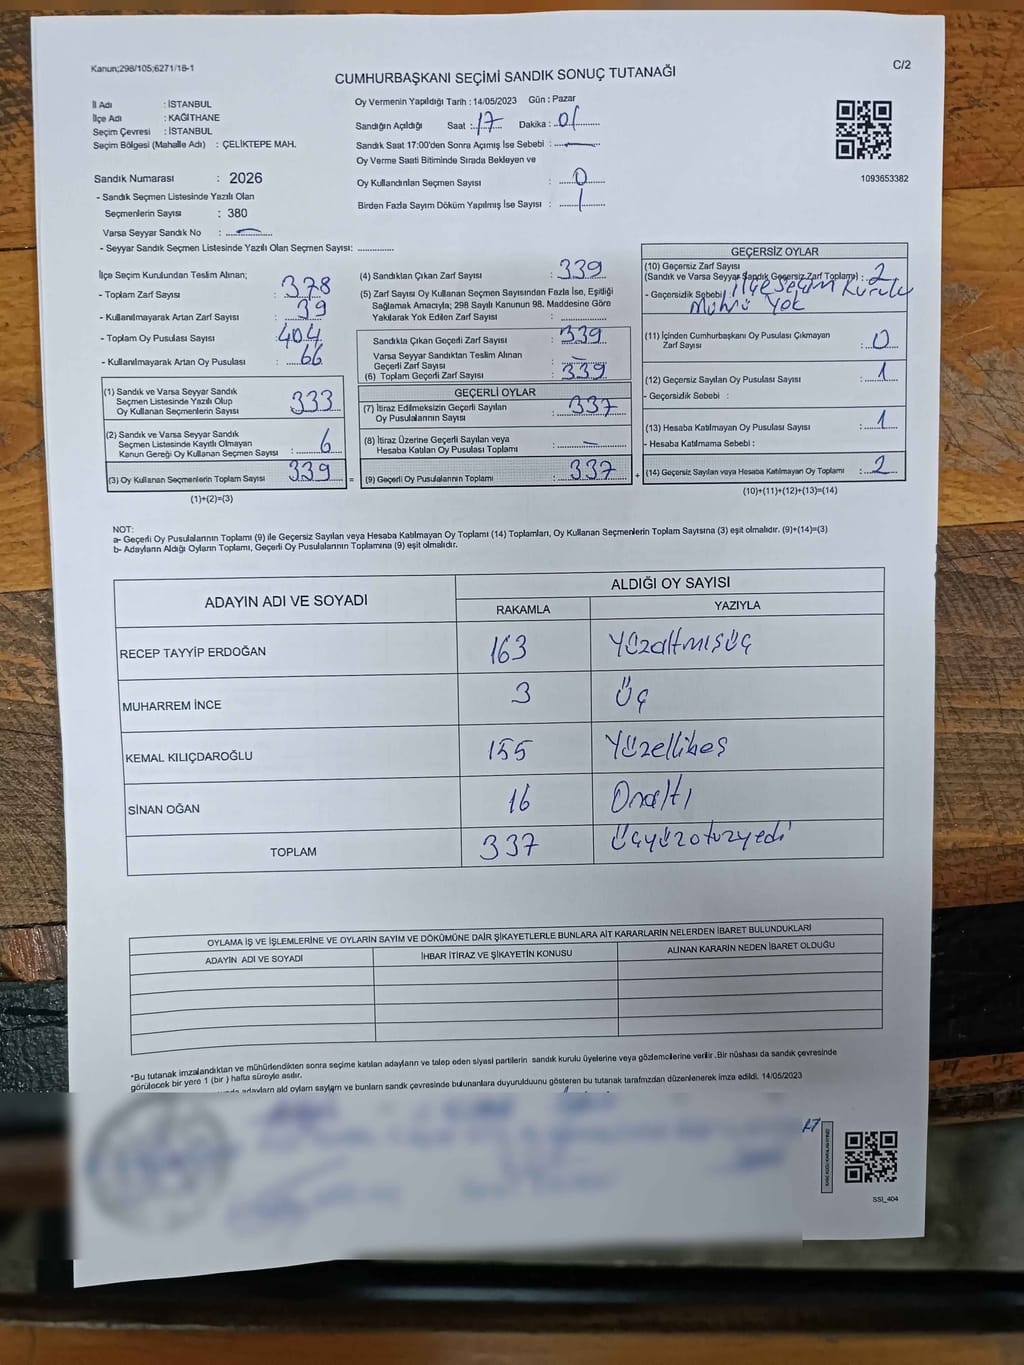 Kanun;298/105;6271/18-1
C/2
CUMHURBAŞKANI SEÇİMİ SANDIK SONUÇ TUTANAĞI
İl Adı : İSTANBUL
İlçe Adı : KAĞITHANE
Seçim Çevresi : İSTANBUL
Seçim Bölgesi (Mahalle Adı) : ÇELİKTEPE MAH.
Sandık Numarası : 2026
- Sandık Seçmen Listesinde Yazılı Olan
Seçmenlerin Sayısı : 380
Varsa Seyyar Sandık No : —
- Seyyar Sandık Seçmen Listesinde Yazılı Olan Seçmen Sayısı: ..............
Oy Vermenin Yapıldığı Tarih : 14/05/2023 Gün : Pazar
Sandığın Açıldığı Saat : 17 Dakika : 01
Sandık Saat 17:00'den Sonra Açımış İse Sebebi : —
Oy Verme Saati Bitiminde Sırada Bekleyen ve
Oy Kullandırılan Seçmen Sayısı : 0
Birden Fazla Sayım Döküm Yapılmış İse Sayısı : 1
1093653382
İlçe Seçim Kurulundan Teslim Alınan;
- Toplam Zarf Sayısı : 378
- Kullanılmayarak Artan Zarf Sayısı : 39
- Toplam Oy Pusulası Sayısı : 404
- Kullanılmayarak Artan Oy Pusulası : 66
(1) Sandık ve Varsa Seyyar Sandık
Seçmen Listesinde Yazılı Olup
Oy Kullanan Seçmenlerin Sayısı : 333
(2) Sandık ve Varsa Seyyar Sandık
Seçmen Listesinde Kayıtlı Olmayan
Kanun Gereği Oy Kullanan Seçmen Sayısı : 6
(3) Oy Kullanan Seçmenlerin Toplam Sayısı : 339
(1)+(2)=(3)
(4) Sandıktan Çıkan Zarf Sayısı : 339
(5) Zarf Sayısı Oy Kullanan Seçmen Sayısından Fazla İse, Eşitliği
Sağlamak Amacıyla; 298 Sayılı Kanunun 98. Maddesine Göre
Yakılarak Yok Edilen Zarf Sayısı : ..............
Sandıkta Çıkan Geçerli Zarf Sayısı : 339
Varsa Seyyar Sandıktan Teslim Alınan
Geçerli Zarf Sayısı : —
(6) Toplam Geçerli Zarf Sayısı : 339
GEÇERLİ OYLAR
(7) İtiraz Edilmeksizin Geçerli Sayılan
Oy Pusulalarının Sayısı : 337
(8) İtiraz Üzerine Geçerli Sayılan veya
Hesaba Katılan Oy Pusulası Toplamı : —
= (9) Geçerli Oy Pusulalarının Toplamı : 337 +
GEÇERSİZ OYLAR
(10) Geçersiz Zarf Sayısı
(Sandık ve Varsa Seyyar Sandık Geçersiz Zarf Toplamı) : 2
- Geçersizlik Sebebi : İlçe Seçim Kurulu
Mührü Yok
(11) İçinden Cumhurbaşkanı Oy Pusulası Çıkmayan
Zarf Sayısı : 0
(12) Geçersiz Sayılan Oy Pusulası Sayısı : 1
- Geçersizlik Sebebi :
(13) Hesaba Katılmayan Oy Pusulası Sayısı : 1
- Hesaba Katılmama Sebebi :
(14) Geçersiz Sayılan veya Hesaba Katılmayan Oy Toplamı : 2
(10)+(11)+(12)+(13)=(14)
NOT:
a- Geçerli Oy Pusulalarının Toplamı (9) ile Geçersiz Sayılan veya Hesaba Katılmayan Oy Toplamı (14) Toplamları, Oy Kullanan Seçmenlerin Toplam Sayısına (3) eşit olmalıdır. (9)+(14)=(3)
b- Adayların Aldığı Oyların Toplamı, Geçerli Oy Pusulalarının Toplamına (9) eşit olmalıdır.
ADAYIN ADI VE SOYADI
ALDIĞI OY SAYISI
RAKAMLA YAZIYLA
RECEP TAYYİP ERDOĞAN 163 Yüzaltmışüç
MUHARREM İNCE 3 Üç
KEMAL KILIÇDAROĞLU 155 Yüzellibeş
SİNAN OĞAN 16 Onaltı
TOPLAM 337 Üçyüzotuzyedi
OYLAMA İŞ VE İŞLEMLERİNE VE OYLARIN SAYIM VE DÖKÜMÜNE DAİR ŞİKAYETLERLE BUNLARA AİT KARARLARIN NELERDEN İBARET BULUNDUKLARI
ADAYIN ADI VE SOYADI İHBAR İTİRAZ VE ŞİKAYETİN KONUSU ALINAN KARARIN NEDEN İBARET OLDUĞU
*Bu tutanak imzalandıktan ve mühürlendikten sonra seçime katılan adayların ve talep eden siyasi partilerin sandık kurulu üyelerine veya gözlemcilerine verilir .Bir nüshası da sandık çevresinde
görülecek bir yere 1 (bir ) hafta süreyle asılır.
adayların ald oyların sayların ve bunların sandık çevresinde bulunanlara duyurulduunu gösteren bu tutanak tarafmzdan düzenlenerek imza edildi. 14/05/2023
SSI_404